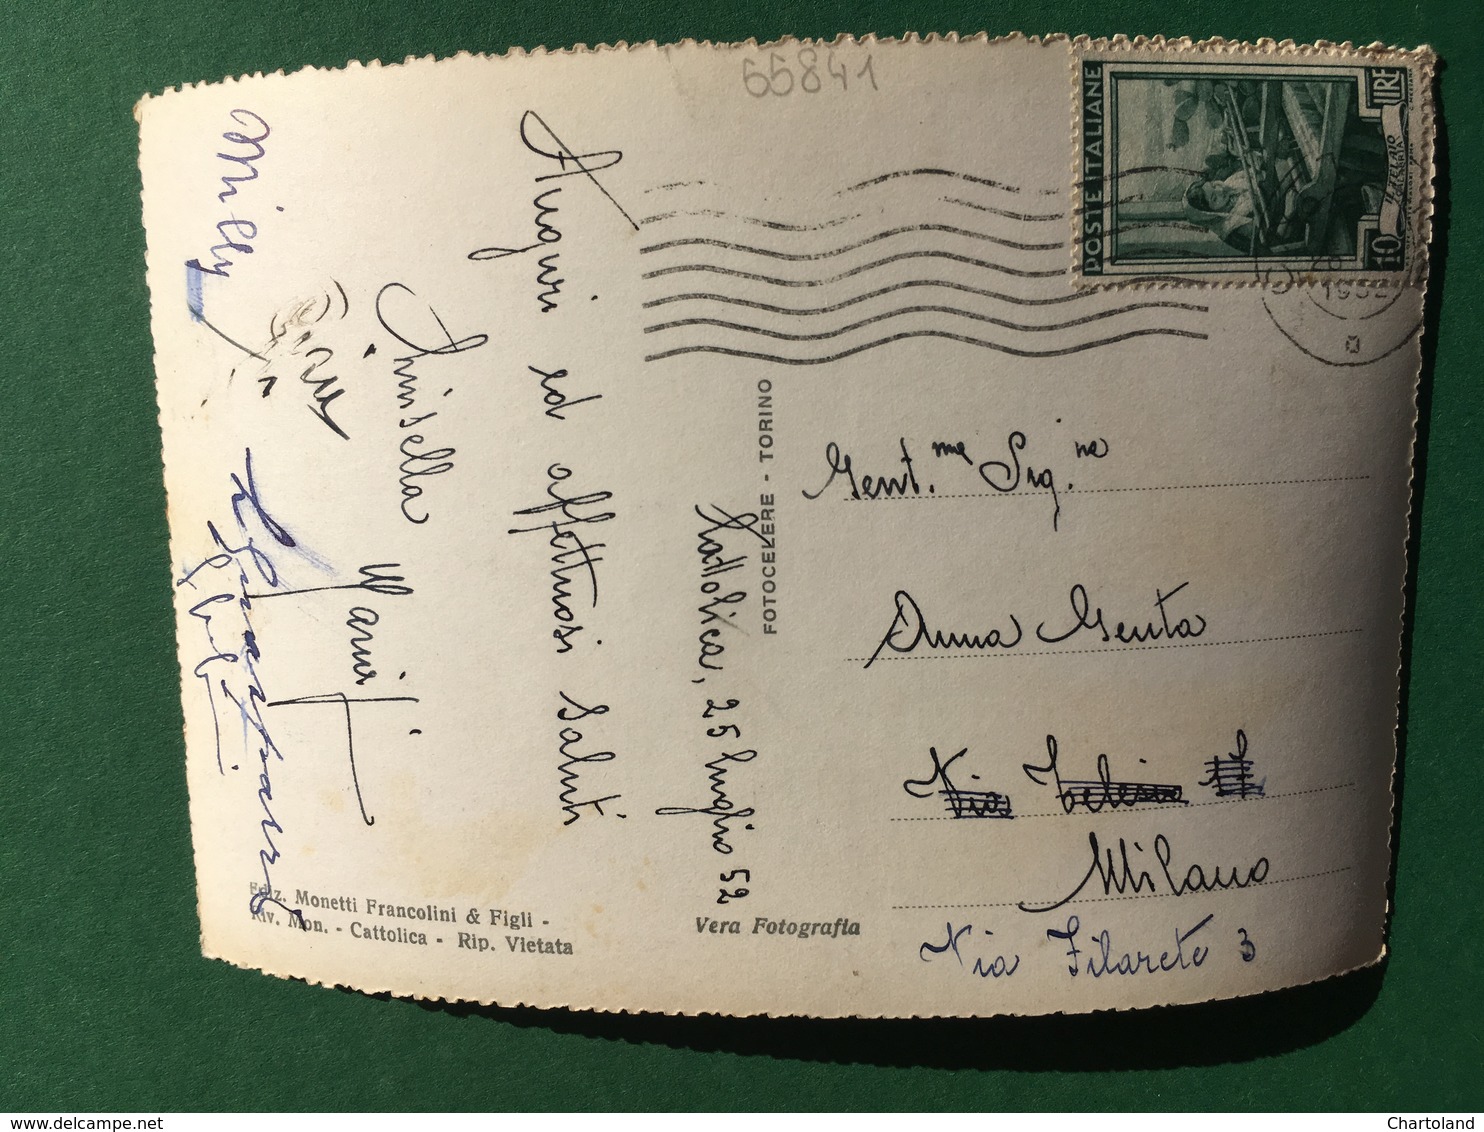 66841
POSTE ITALIANE
LIRE
10
1952
Cattolica, 25 luglio 52
Auguri ed affettuosi saluti
Milly
FOTOCELERE - TORINO
Gent.me Sig.na
Anna Genta
Via Telesio
Milano
Via Filarete 3
Ediz. Monetti Francolini & Figli -
Riv. Mon. - Cattolica - Rip. Vietata
Vera Fotografia
Chartoland